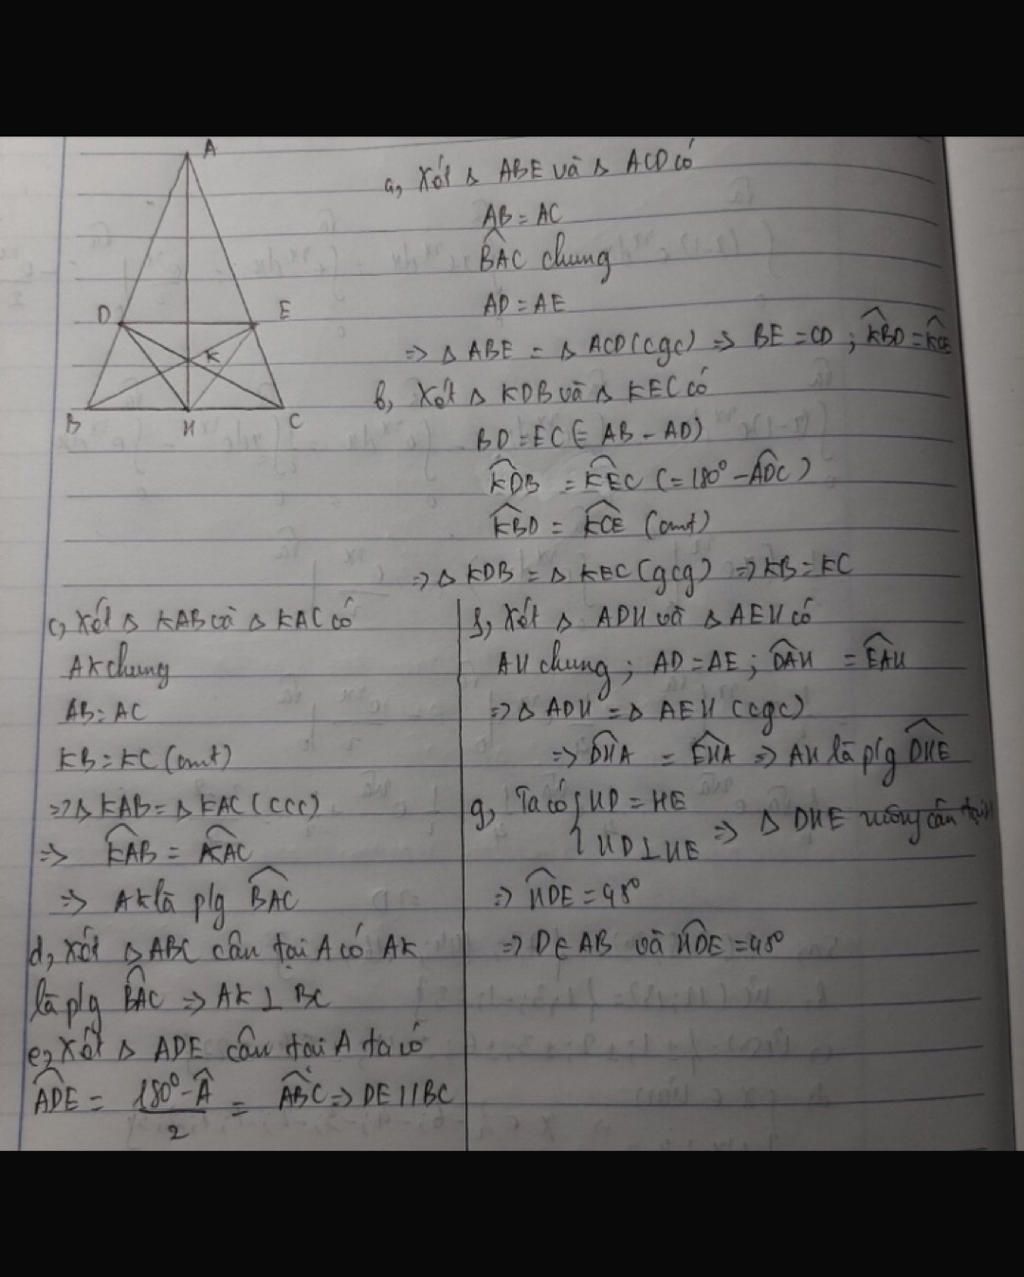 A
D
E
K
B
H
C
a, Xét Δ ABE và Δ ACD có
AB = AC
BAC chung
AD = AE
=> Δ ABE = Δ ACD (cgc) => BE = CD ; KBD = KCE
b, Xét Δ KDB và Δ KEC có
BD = EC (= AB - AD)
KDB = KEC (= 180° - ADC)
KBD = KCE (cmt)
=> Δ KDB = Δ KEC (gcg) => KB = KC
c, Xét Δ KAB và Δ KAC có
AK chung
AB = AC
KB = KC (cmt)
=> Δ KAB = Δ KAC (ccc)
=> KAB = KAC
=> AK là p/g BAC
d, Xét Δ ABC cân tại A có AK
là p/g BAC => AK ⊥ BC
e, Xét Δ ADE cân tại A ta có
ADE = (180° - A)/2 = ABC => DE // BC
f, Xét Δ ADH và Δ AEH có
AH chung ; AD = AE ; DAH = EAH
=> Δ ADH = Δ AEH (cgc)
=> DHA = EHA => AH là p/g DHE
g, Ta có { HD = HE
HD ⊥ HE => Δ DHE vuông cân tại H
=> HDE = 45°
=> D ∈ AB và HDE = 45°